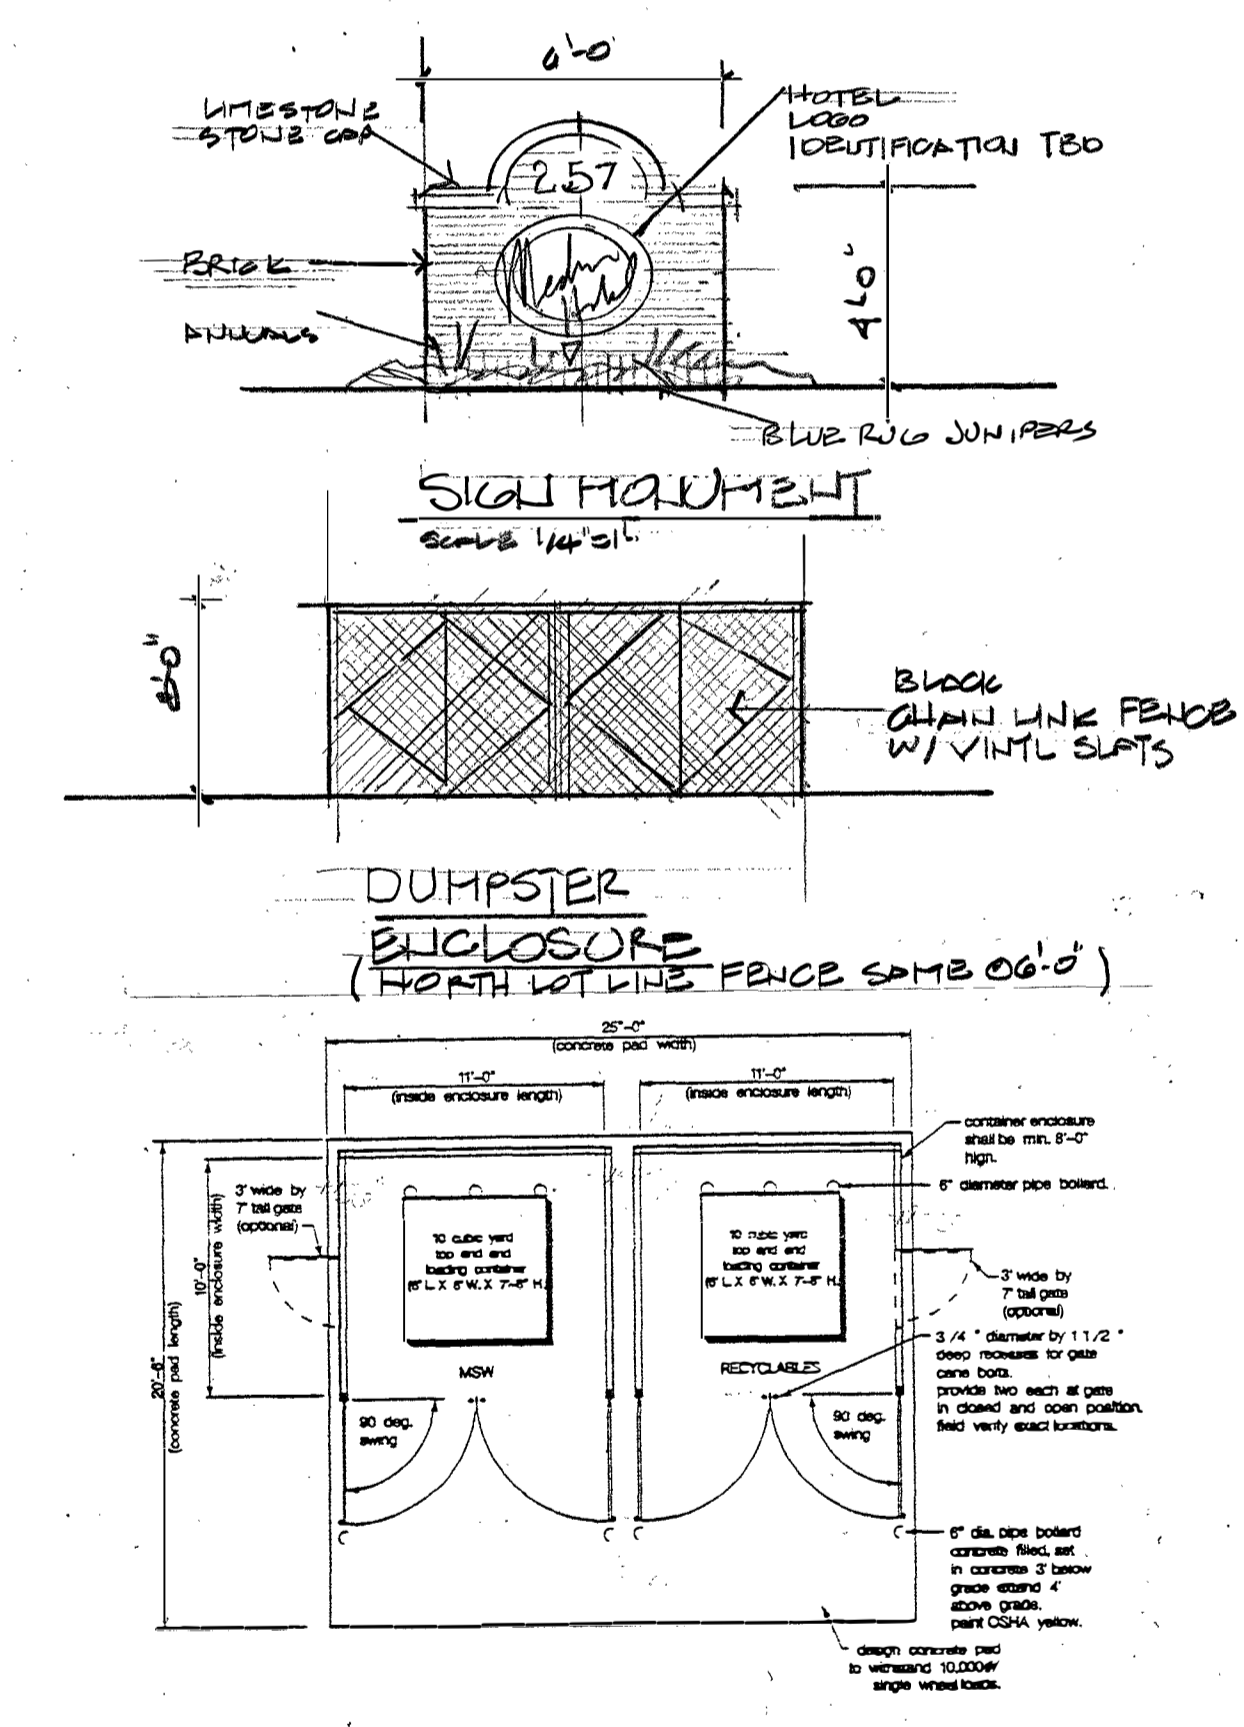 6'-0"
LIMESTONE
STONE CAP
HOTEL
LOGO
IDENTIFICATION TBD
257
BRICK
ANNUALS
BLUE RUG JUNIPERS
SIGN MONUMENT
SCALE 1/4"=1'
8'-0"
BLACK
CHAIN LINK FENCE
W/ VINYL SLATS
DUMPSTER
ENCLOSURE
(NORTH LOT LINE FENCE SAME @6'-0")
25'-0"
(concrete pad width)
11'-0"
(inside enclosure length)
11'-0"
(inside enclosure length)
container enclosure
shall be min. 8'-0"
high.
6" diameter pipe bollard.
3' wide by
7' tall gate
(optional)
10'-0"
(inside enclosure width)
20'-6"
(concrete pad length)
10 cubic yard
top and end
loading container
10 cubic yard
top and end
loading container
3' wide by
7' tall gate
(optional)
MSW
RECYCLABLES
3/4 " diameter by 1 1/2 "
deep recesses for gate
cane bolts.
provide two each at gate
in closed and open position.
field verify exact locations.
90 deg.
swing
90 deg.
swing
6" dia. pipe bollard
concrete filled, set
in concrete 3' below
grade extend 4'
above grade.
paint OSHA yellow.
design concrete pad
to withstand 10,000#
single wheel loads.